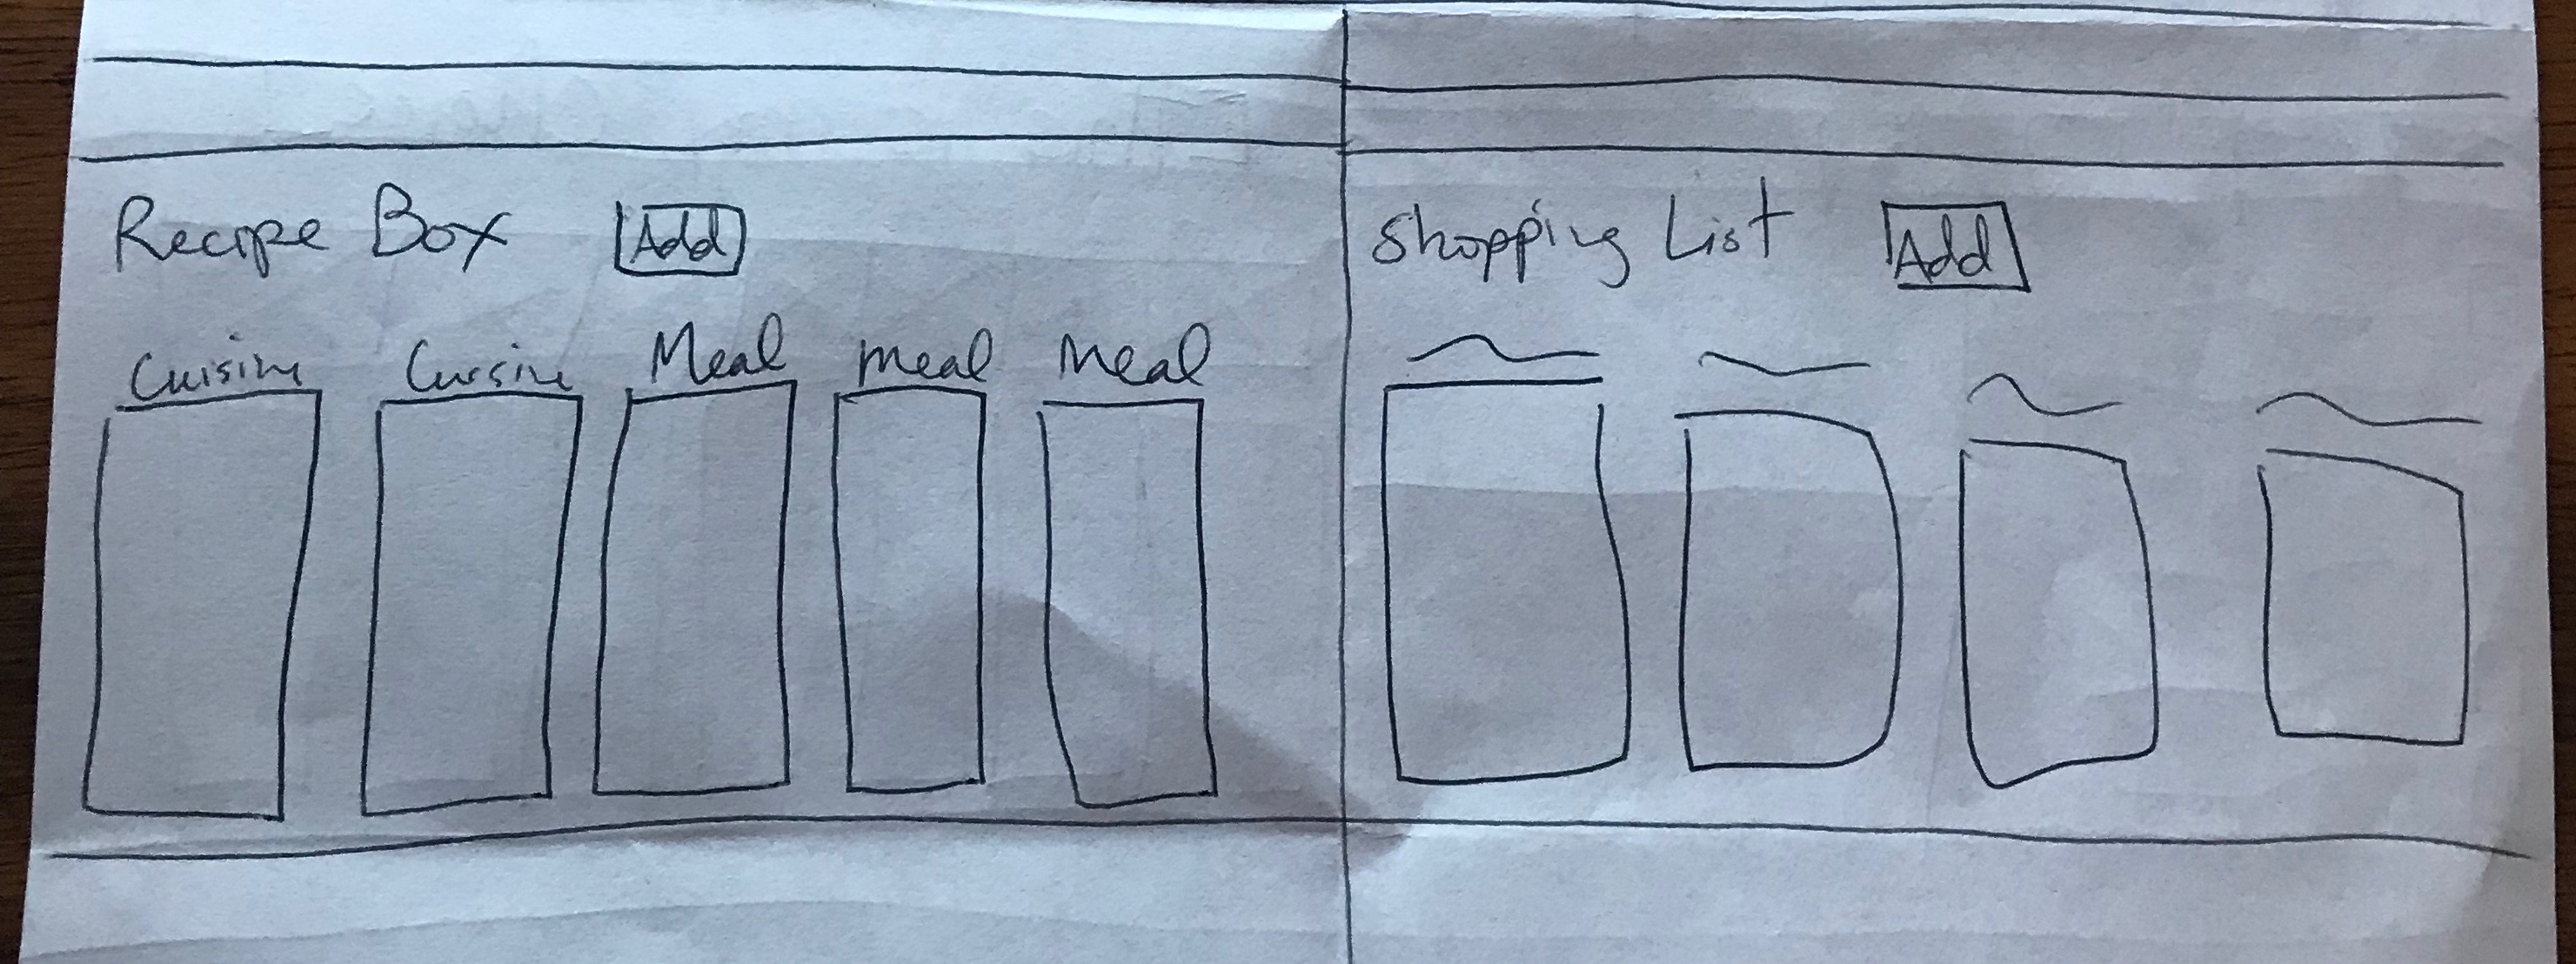 Recipe Box Add
Cuisine Cuisine Meal Meal Meal
Shopping List Add